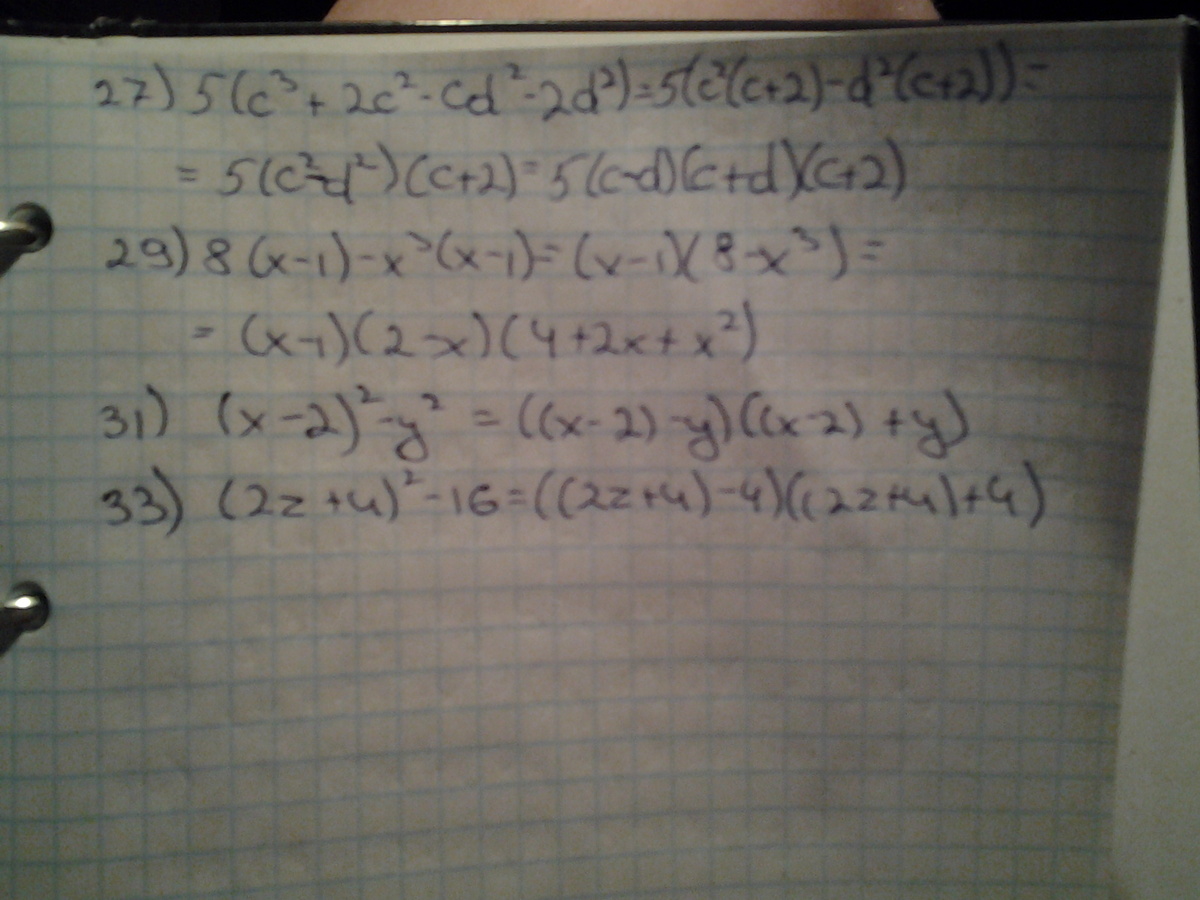 27) 5(c³ + 2c² - cd² - 2d²) = 5(c²(c+2) - d²(c+2)) =
= 5(c²-d²)(c+2) = 5(c-d)(c+d)(c+2)
29) 8(x-1) - x³(x-1) = (x-1)(8-x³) =
= (x-1)(2-x)(4+2x+x²)
31) (x-2)² - y² = ((x-2)-y)((x-2)+y)
33) (2z+4)² - 16 = ((2z+4)-4)((2z+4)+4)